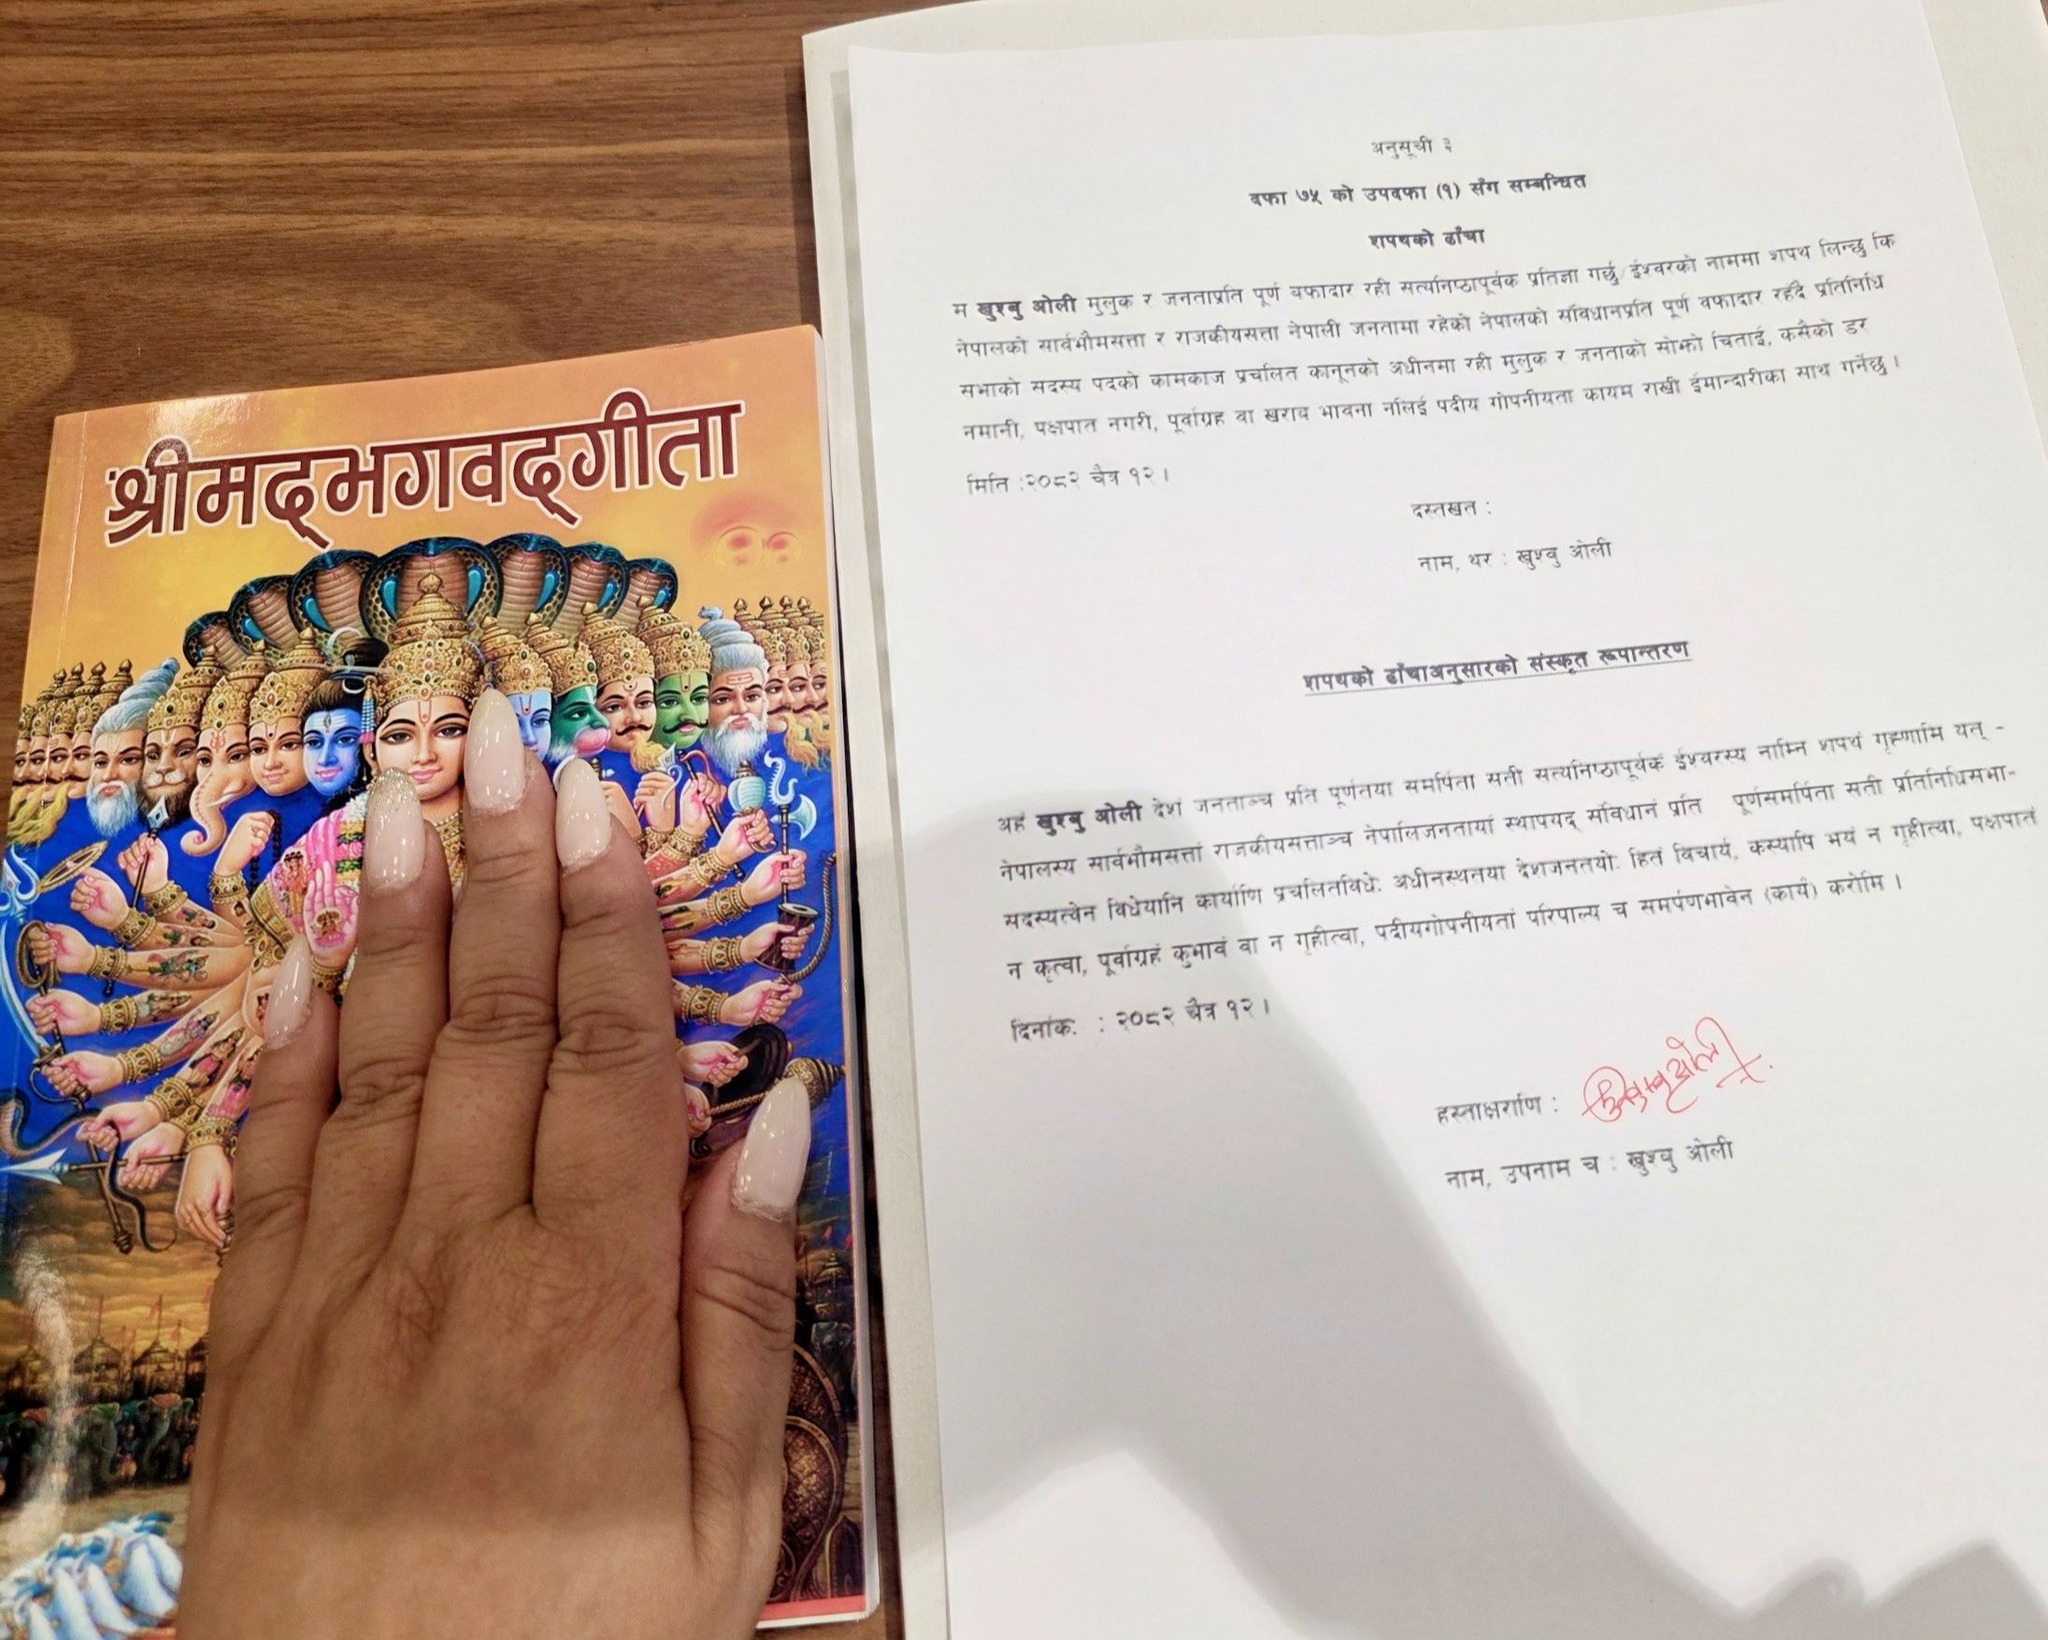 श्रीमद्भगवद्गीता
अनुसूची ३
दफा ७५ को उपदफा (१) सँग सम्बन्धित
शपथको ढाँचा
म खुश्बु ओली मुलुक र जनताप्रति पूर्ण बफादार रही सत्यनिष्ठापूर्वक प्रतिज्ञा गर्छु/ईश्वरको नाममा शपथ लिन्छु कि
नेपालको सार्वभौमसत्ता र राजकीयसत्ता नेपाली जनतामा रहेको नेपालको संविधानप्रति पूर्ण वफादार रहँदै प्रतिनिधि
सभाको सदस्य पदको कामकाज प्रचलित कानूनको अधीनमा रही मुलुक र जनताको सोझो चिताई, कसैको डर
नमानी, पक्षपात नगरी, पूर्वाग्रह वा खराब भावना नलिई पदीय गोपनीयता कायम राखी ईमान्दारीका साथ गर्नेछु ।
मिति :२०८२ चैत्र १२ ।
दस्तखत :
नाम, थर : खुश्बु ओली
शपथको ढाँचाअनुसारको संस्कृत रूपान्तरण
अहं खुश्बु ओली देशं जनताञ्च प्रति पूर्णतया समर्पिता सती सत्यनिष्ठापूर्वकं ईश्वरस्य नाम्नि शपथं गृह्णामि यत् -
नेपालस्य सार्वभौमसत्तां राजकीयसत्ताञ्च नेपालिजनतायां स्थापयद् संविधानं प्रति पूर्णसमर्पिता सती प्रतिनिधिसभा-
सदस्यत्वेन विधेयानि कार्याणि प्रचलितविधेः अधीनस्थतया देशजनतयोः हितं विचार्य, कस्यापि भयं न गृहीत्वा, पक्षपातं
न कृत्वा, पूर्वाग्रहं कुभावं वा न गृहीत्वा, पदीयगोपनीयतां परिपाल्य च समर्पणभावेन (कार्यं) करोमि ।
दिनांकः : २०८२ चैत्र १२ ।
हस्ताक्षराणि : खुश्बु ओली
नाम, उपनाम च : खुश्बु ओली